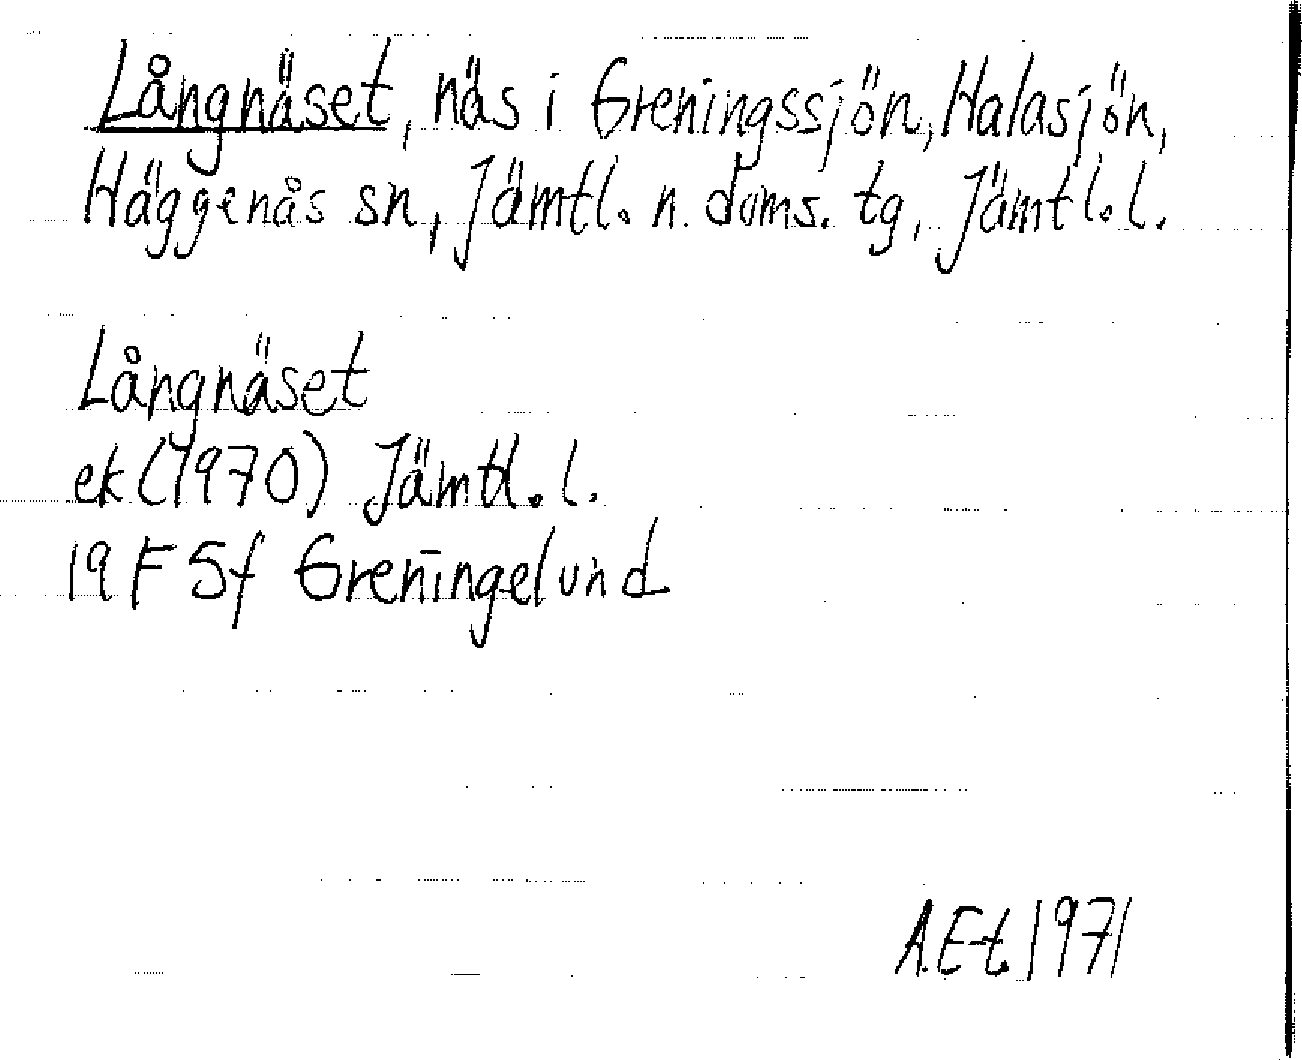 Långnäset, näs i Greningssjön, Halasjön,
Häggenås sn, Jämtl. n. doms. tg, Jämtl. l.
Långnäset
ek (1970) Jämtl. l.
19 F 5f Greningelund
A.E-t. 1971